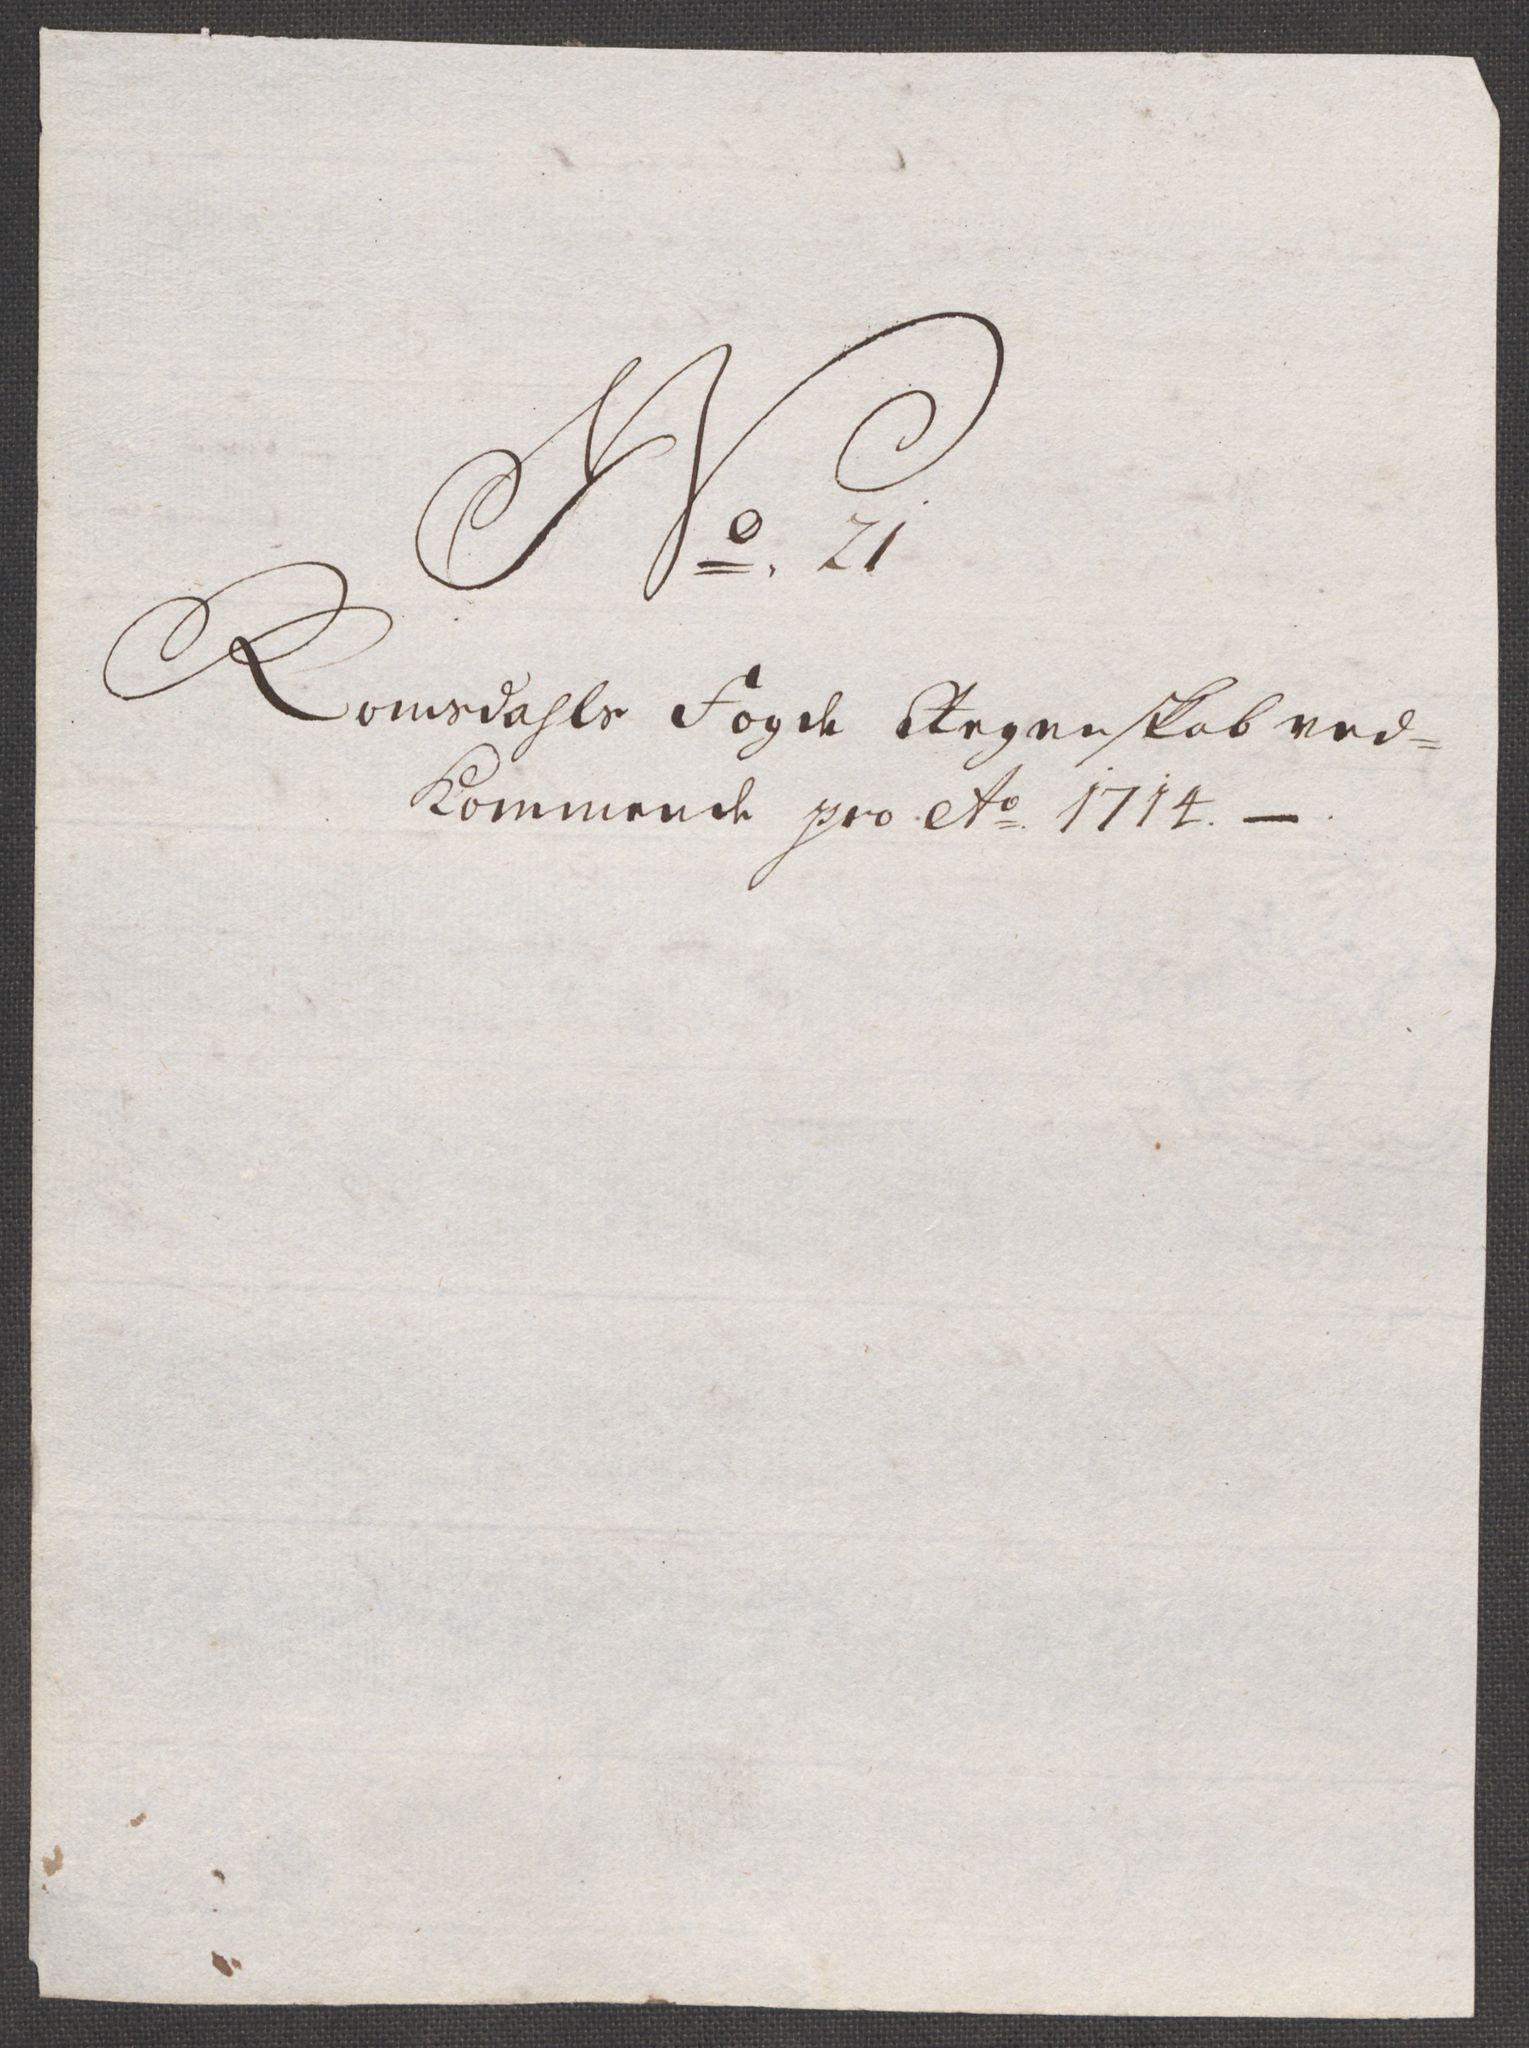 No. 21
Romsdahls Fogde Regenskab ved=
kommende pro Ao. 1714. —